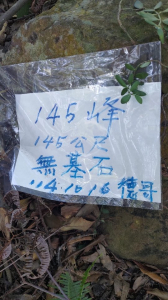 145峰
145公尺
無基石
114.10.16 德哥